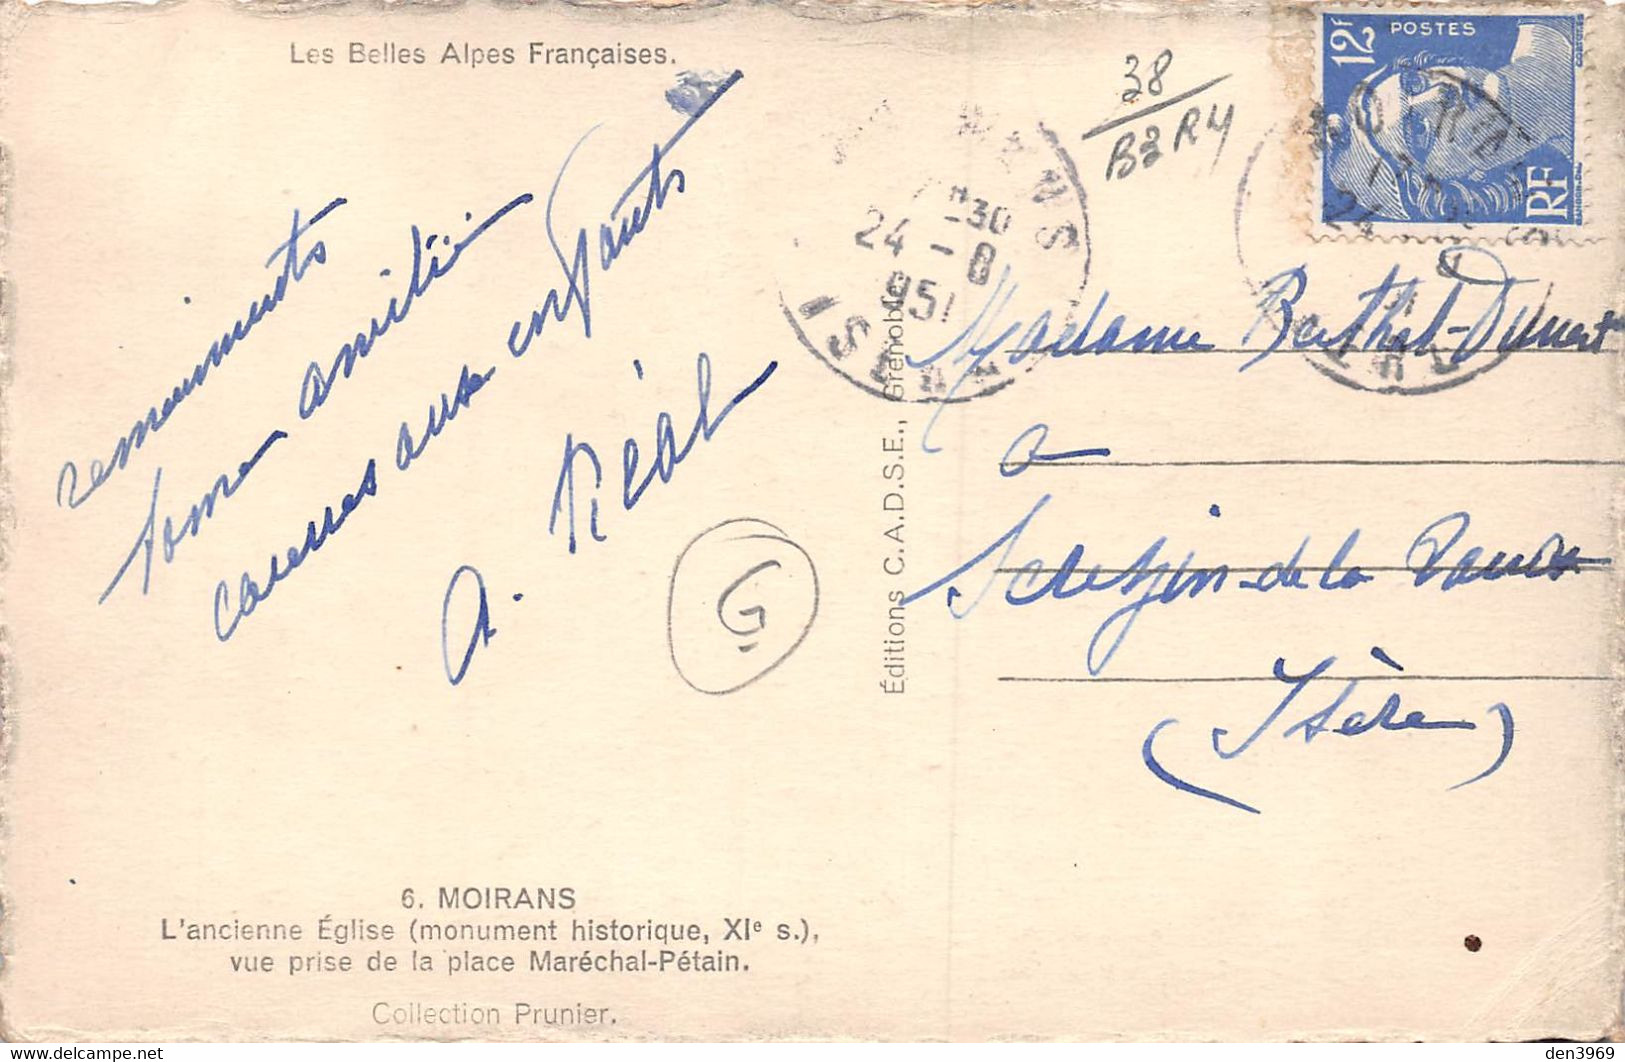 Les Belles Alpes Françaises.
38
B3R4
12F
POSTES
RF
MOIRANS
24 - 8
1951
ISERE
remerciements
bonne amitié
caresses aux enfants
A. Réal
G
Éditions C.A.D.S.E., Grenoble
Madame
à
de la
(Isère)
6. MOIRANS
L'ancienne Église (monument historique, XIe s.),
vue prise de la place Maréchal-Pétain.
Collection Prunier.
https://www.delcampe.net
den3969